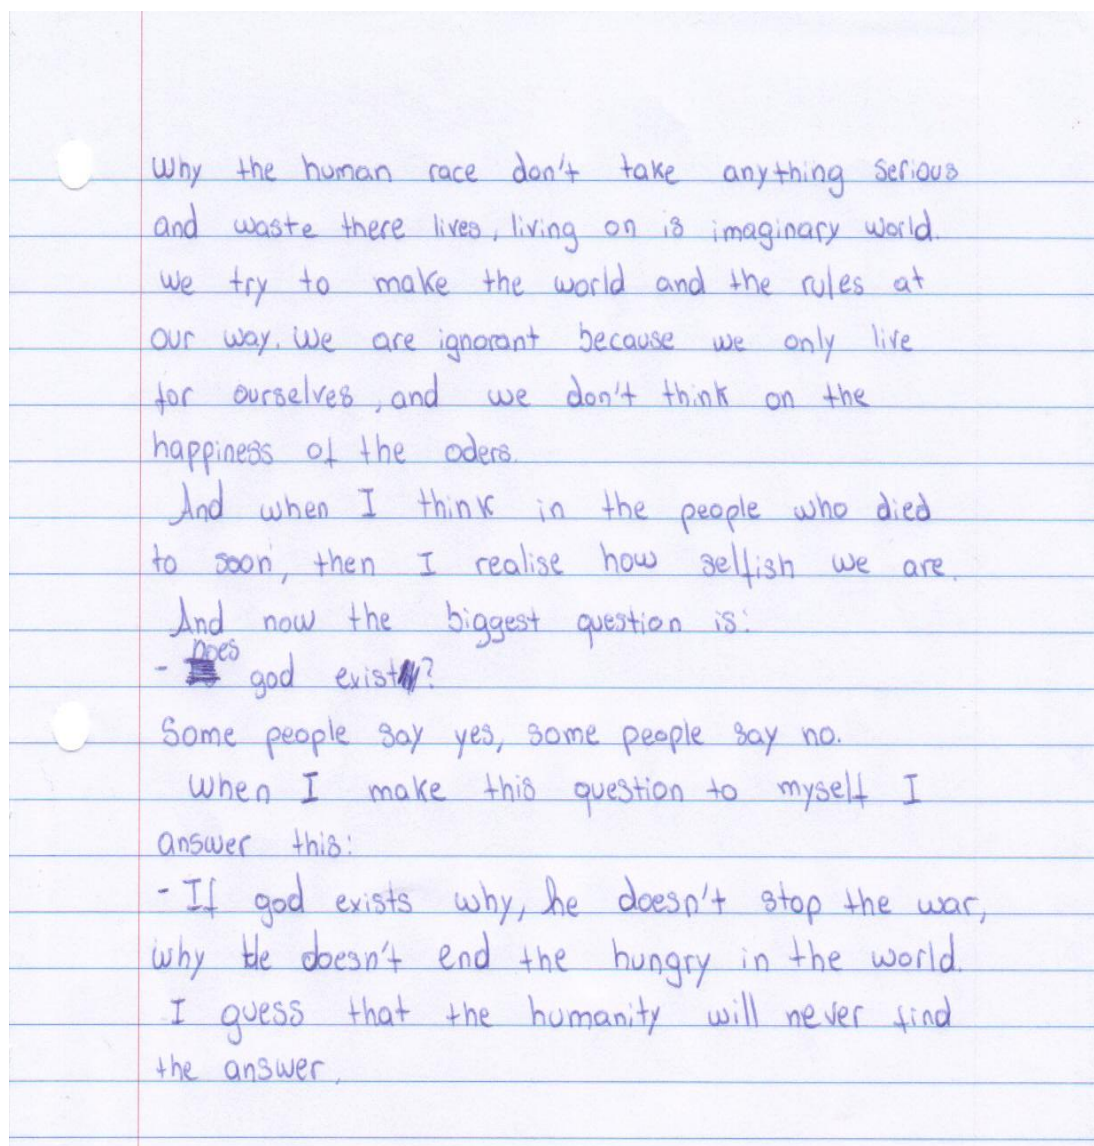 Why the human race don't take anything serious
and waste there lives, living on is imaginary world.
we try to make the world and the rules at
our way. We are ignorant because we only live
for ourselves, and we don't think on the
happiness of the oders.
And when I think in the people who died
to soon, then I realise how selfish we are.
And now the biggest question is:
- Does god exist?
Some people say yes, some people say no.
When I make this question to myself I
answer this:
- If god exists why, he doesn't stop the war,
why He doesn't end the hungry in the world.
I guess that the humanity will never find
the answer.